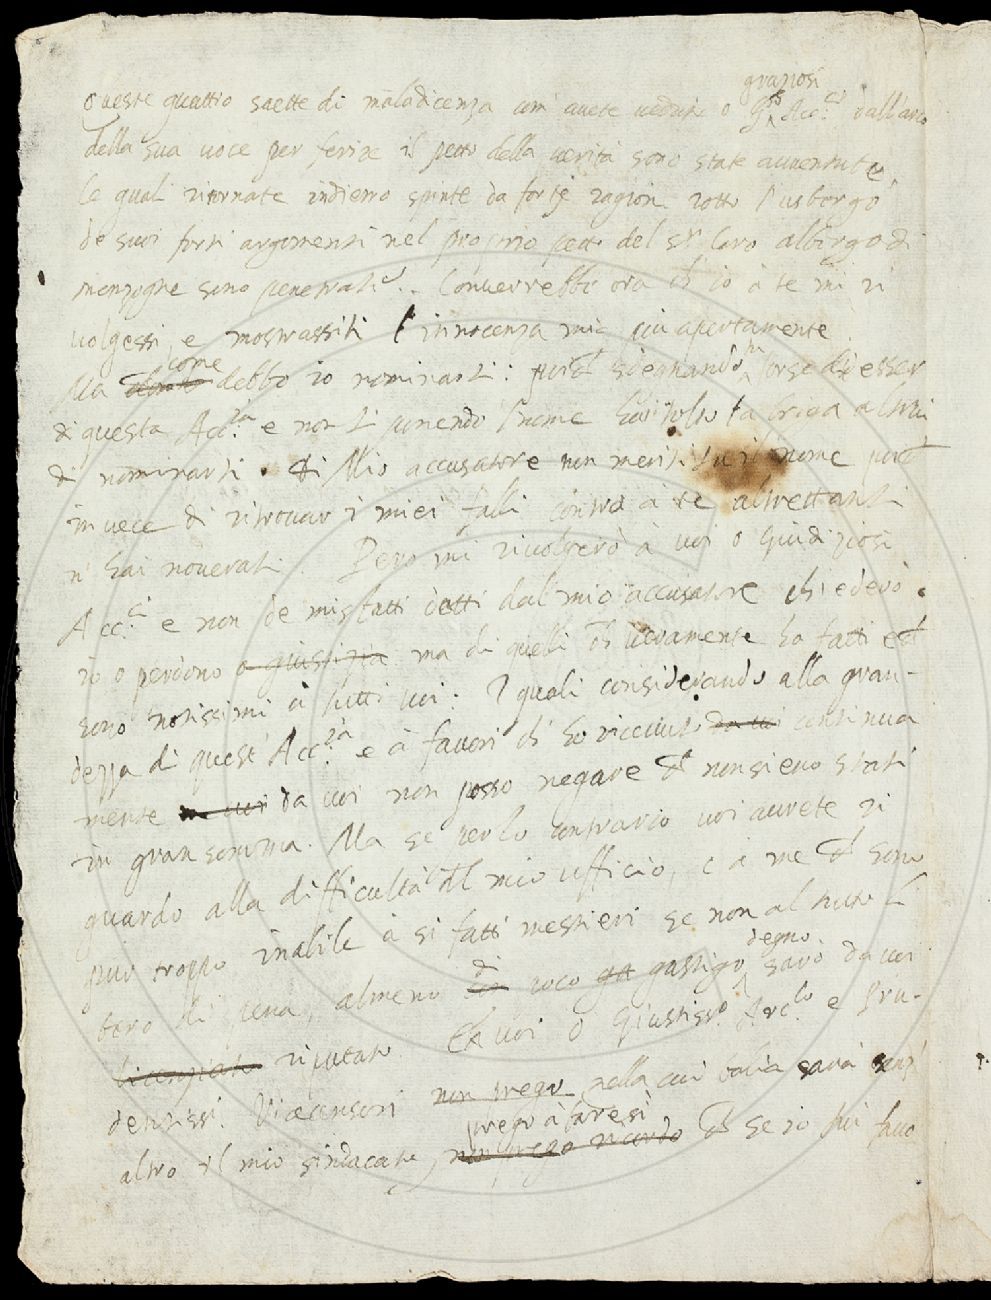 graziosi
Queste quattro saette di maladicenza com' avete veduto o Acc.ci dall'arco
della sua voce per ferire il petto della verità sono state avventate
le quali ritornate indietro spinte da forti ragioni rotto l'usbergo
de suoi forti argomenti nel proprio petto del loro albergo di
menzogne sono penetrati. Converrebbe ora ch' io à te mi ri
volgessi, e mostrassiti l'innocenza mia più apertamente
come
Ma debbo io nominarti: sdegnando tu forse d'esser
di questa Acc.ia e non ti ponendo l'nome hai tolto la briga altrui
di nominarti. Mio accusatore non meriti tu il nome
in vece di ritrovar i miei falli contra à te altrettanti
n' hai noverati. Pero mi rivolgerò à voi o Giudiziosi
Acc.ci e non de misfatti detti dal mio accusatore chiederò
io o perdono o giustizia ma di quelli ch veramente ho fatti e ch
sono notissimi à tutti voi: I quali considerando alla gran-
dezza di quest' Acc.ia e à favori ch' ho ricevuti continua
mente da voi non posso negare ch non sieno stati
in gran somma. Ma se per lo contrario voi avrete ri
guardo alla difficultà del mio ufficio, e à me ch sono
pur troppo inabile à si fatti mestieri se non al tutto li
degno
bero di pena, almeno di poco gastigo sarò da voi
licenziato riputato. Et voi o Giustiss.o Arc.lo e Pru-
dentissi. Vicecensori non prego nella cui balia sarà senz'
prego à faresi
altro il mio sindacato, non prego ricordo ch se io fui favo